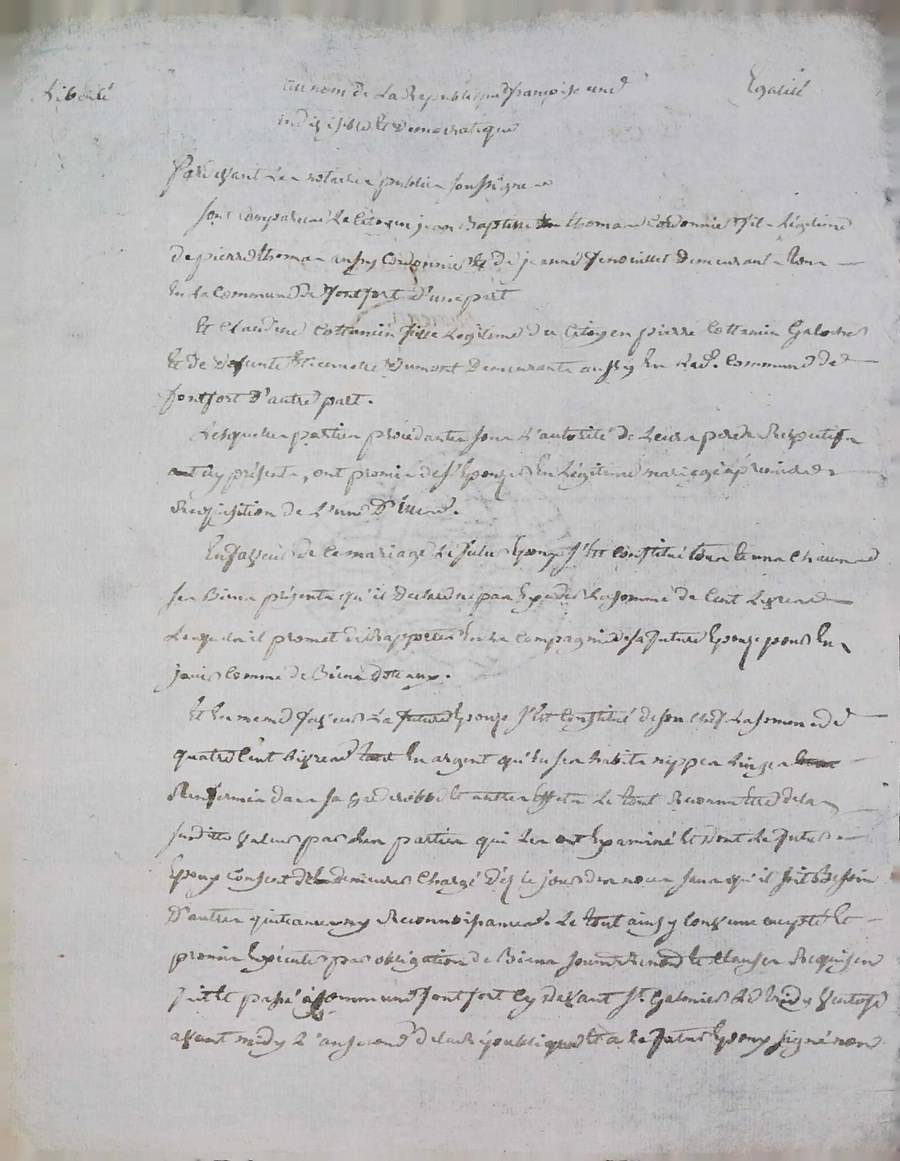 Liberté
au nom de La Republique françoise une
Egalité
indivisible et Democratique
Pardevant Les notaires publics soussignes
sont comparus Le Citoyen jean Baptiste thomas Cordonnier fils Légitime
de pierre thomas aussy Cordonnier & de jeanne fenouillet Demeurants tous
En La Commune de fontfort d'une part
Et Claudine Cottancin fille Légitime du Citoyen pierre Cottancin Galocher
Et de Defunte Dumont Demeurante aussy En Lad. Commune de
fontfort D'autre part.
Lesquelles parties procédantes sous L'autorité de Leurs peres Respectifs
cy présents, ont promis de s'Epouser En Légitime mariage à premiere
Requisition de L'une D'Elles.
En faveur de Ce mariage Le futur Epoux s'Est Constitué tous Et uns Chacuns
ses Biens présents qu'il Declare ne pas Exceder La somme de Cent Livres
Lesquels il promet de Rapporter En La Compagnie de sa future Epouse pour En
jouir Comme de Biens dotaux.
Et En meme faveur La future Epouse s'Est Constitué de son Chef La somme de
quatre Cent Livres tant En argent qu'En ses habits nippes Linges
Renfermés dans sa garderobbe Et autres Effets Le tout Reconnu Etre de la
susditte valeur par Les parties qui Les ont Examiné Et dont Le futur
Epoux Consent de demeurer Chargé Dès Le jour des noces sans qu'il soit Besoin
D'autres quittances ny Reconnoissances Le tout ainsy Convenu accepté Et
promis Exécuter par obligation de Biens soumis Renonc Et Clauses Requises
fait Et passé à Commune fontfort Cy devant St. Galmier Le tridy Ventose
avant midy L'an second de la République Et a Le futur Epoux signé non